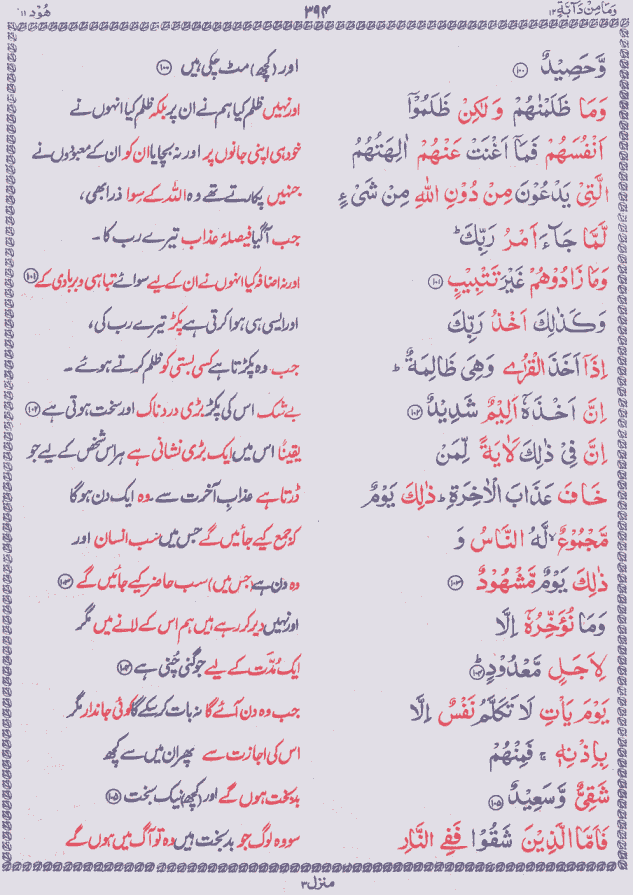 وَمَا مِنْ دَآبَّةٍ ۱۲ ۳۹۴ هُوْد ۱۱
وَّحَصِيْدٌ ۝۱۰۰ اور (کچھ) مٹ چکی ہیں ۝۱۰۰
وَمَا ظَلَمْنٰهُمْ وَلٰكِنْ ظَلَمُوْٓا اور نہیں ظلم کیا ہم نے ان پر بلکہ ظلم کیا انہوں نے
اَنْفُسَهُمْ فَمَآ اَغْنَتْ عَنْهُمْ اٰلِهَتُهُمُ خود ہی اپنی جانوں پر اور نہ بچایا ان کو ان کے معبودوں نے
الَّتِيْ يَدْعُوْنَ مِنْ دُوْنِ اللّٰهِ مِنْ شَيْءٍ جنہیں پکارتے تھے وہ اللہ کے سوا ذرا بھی،
لَّمَّا جَآءَ اَمْرُ رَبِّكَ ؕ جب آگیا فیصلۂ عذاب تیرے رب کا۔
وَمَا زَادُوْهُمْ غَيْرَ تَتْبِيْبٍ ۝۱۰۱ اور نہ اضافہ کیا انہوں نے ان کے لیے سوائے تباہی و بربادی کے ۝۱۰۱
وَكَذٰلِكَ اَخْذُ رَبِّكَ اور ایسی ہی ہوا کرتی ہے پکڑ تیرے رب کی،
اِذَآ اَخَذَ الْقُرٰى وَهِيَ ظَالِمَةٌ ؕ جب وہ پکڑتا ہے کسی بستی کو ظلم کرتے ہوئے۔
اِنَّ اَخْذَهٗٓ اَلِيْمٌ شَدِيْدٌ ۝۱۰۲ بے شک اس کی پکڑ بڑی دردناک اور سخت ہوتی ہے ۝۱۰۲
اِنَّ فِيْ ذٰلِكَ لَاٰيَةً لِّمَنْ یقیناً اس میں ایک بڑی نشانی ہے ہر اس شخص کے لیے جو
خَافَ عَذَابَ الْاٰخِرَةِ ؕ ذٰلِكَ يَوْمٌ ڈرتا ہے عذابِ آخرت سے۔ وہ ایک دن ہوگا
مَّجْمُوْعٌ ۙ لَّهُ النَّاسُ وَ کہ جمع کیے جائیں گے جس میں سب انسان اور
ذٰلِكَ يَوْمٌ مَّشْهُوْدٌ ۝۱۰۳ وہ دن ہے (جس میں) سب حاضر کیے جائیں گے ۝۱۰۳
وَمَا نُؤَخِّرُهٗٓ اِلَّا اور نہیں دیر کر رہے ہیں ہم اس کے لانے میں مگر
لِاَجَلٍ مَّعْدُوْدٍ ؕ ۝۱۰۴ ایک مُدّت کے لیے جو گنی چُنی ہے ۝۱۰۴
يَوْمَ يَاْتِ لَا تَكَلَّمُ نَفْسٌ اِلَّا جب وہ دن آئے گا نہ بات کرسکے گا کوئی جاندار مگر
بِاِذْنِهٖ ۚ فَمِنْهُمْ اس کی اجازت سے پھر ان میں سے کچھ
شَقِيٌّ وَّسَعِيْدٌ ۝۱۰۵ بدبخت ہوں گے اور (کچھ) نیک بخت ۝۱۰۵
فَاَمَّا الَّذِيْنَ شَقُوْا فَفِي النَّارِ سو وہ لوگ جو بدبخت ہیں وہ تو آگ میں ہوں گے
منزل ۳